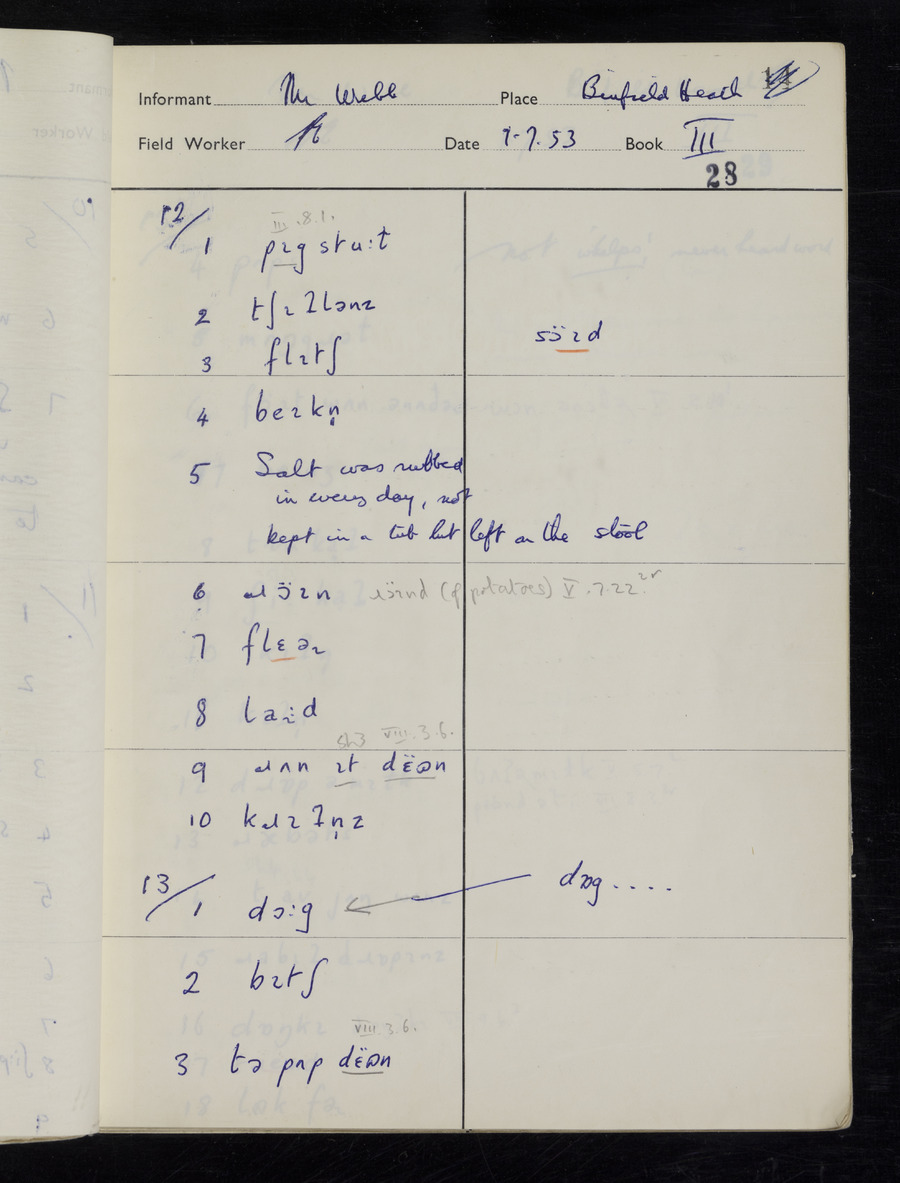 Informant Mr Webb Place Binfield Heath
Field Worker Date 7.53 Book III
28
12/ III.8.1.
1 pɪg stuːt
2 tʃɪʔlənz
sɔ̈ɪd
3 flɪtʃ
4 beɪkn̩
5 Salt was rubbed
in every day, not
kept in a tub but left on the stool
6 ɹɔ̈ɪn ɹɔ̈ɪnd (of potatoes) V.7.22
7 flɛəɪ
8 laːɪd
sh3 VIII.3.6.
9 ɹʌn ɪt dɛ̈ʊn
10 kɹɪʔn̩z
13/ dɒg ....
1 dɔːg
2 bɪtʃ
VIII.3.6.
3 tə pʌp dɛ̈ʊn